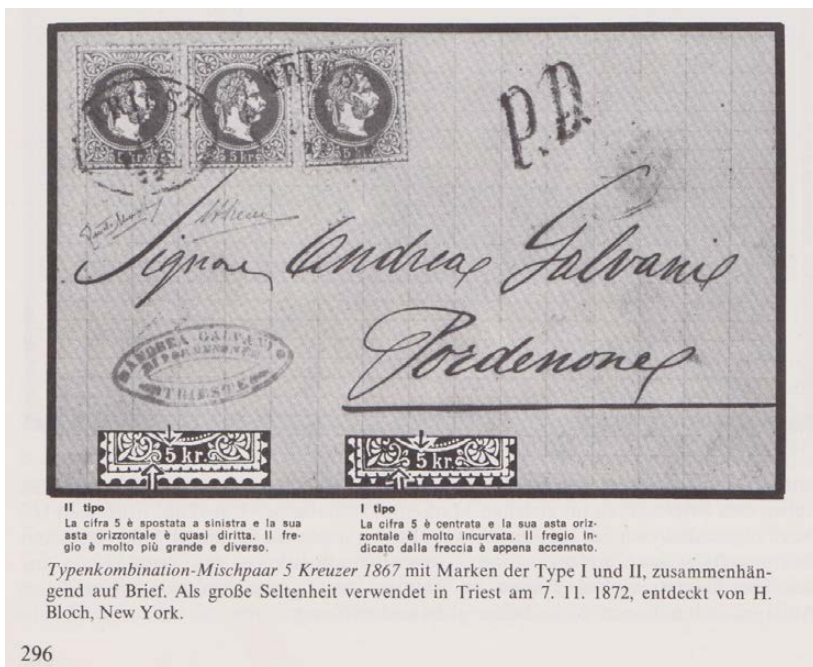 TRIEST TRIEST
5 kr. 5 kr. 5 kr.
P.D.
Signore Andrea Galvani
Pordenone
ANDREA GALVANI
DI PORDENONE
TRIESTE
5 kr. 5 kr.
II tipo
La cifra 5 è spostata a sinistra e la sua
asta orizzontale è quasi diritta. Il fre-
gio è molto più grande e diverso.
I tipo
La cifra 5 è centrata e la sua asta oriz-
zontale è molto incurvata. Il fregio in-
dicato dalla freccia è appena accennato.
Typenkombination-Mischpaar 5 Kreuzer 1867 mit Marken der Type I und II, zusammenhän-
gend auf Brief. Als große Seltenheit verwendet in Triest am 7. 11. 1872, entdeckt von H.
Bloch, New York.
296